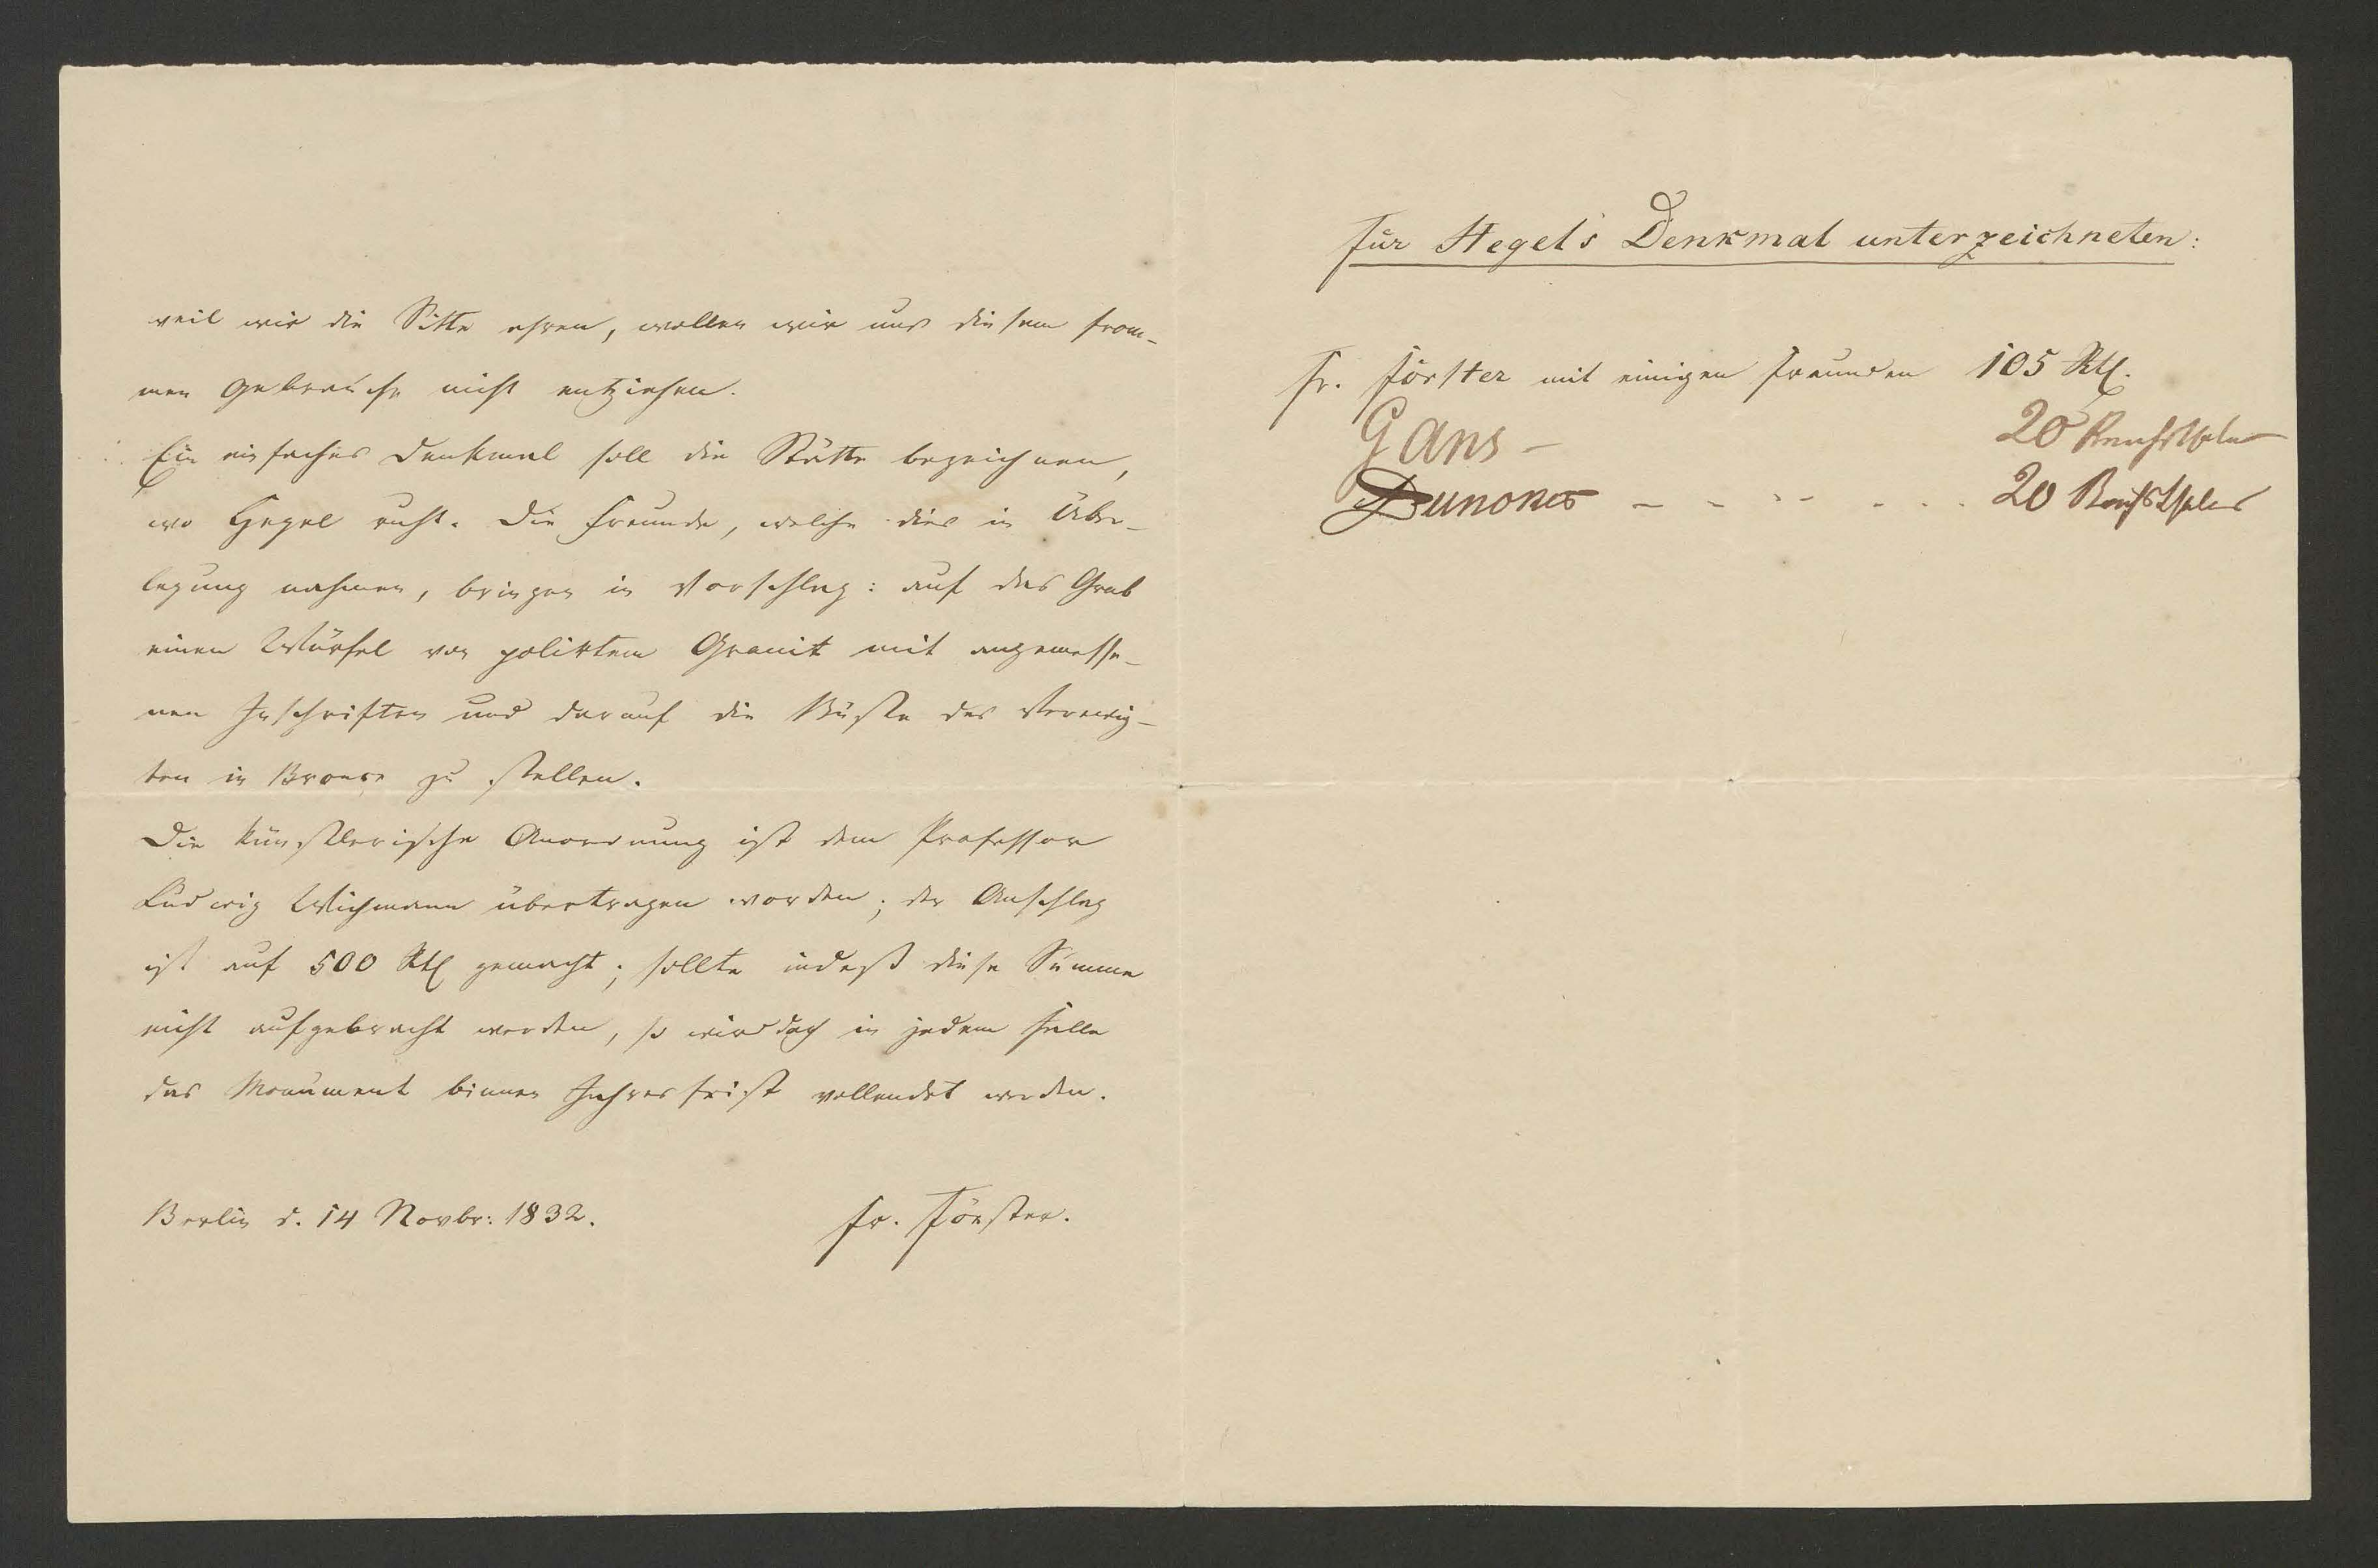 weil wir die Sitte ehren, wollen wir uns diesem from-
men Gebrauche nicht entziehen.
Ein einfaches Denkmal soll die Stätte bezeichnen,
wo Hegel ruht. Die Freunde, welche dies in Über-
legung nahmen, bringen in Vorschlag: auf das Grab
einen Würfel von polirtem Granit mit angemesse-
nen Inschriften und darauf die Büste des Verewig-
ten in Bronce zu stellen.
Die künstlerische Anordnung ist dem Professor
Ludwig Wichmann übertragen worden; der Anschlag
ist auf 500 Rtl gemacht; sollte indeß diese Summe
nicht aufgebracht werden, so wird doch in jedem Falle
das Monument binnen Jahresfrist vollendet werden.
Berlin d. 14 Novbr: 1832. Fr. Förster.
Für Hegel's Denkmal unterzeichneten:
Fr. Förster mit einigen Freunden 105 Rtl.
Gans - 20 Reichsthaler
20 Reichsthaler